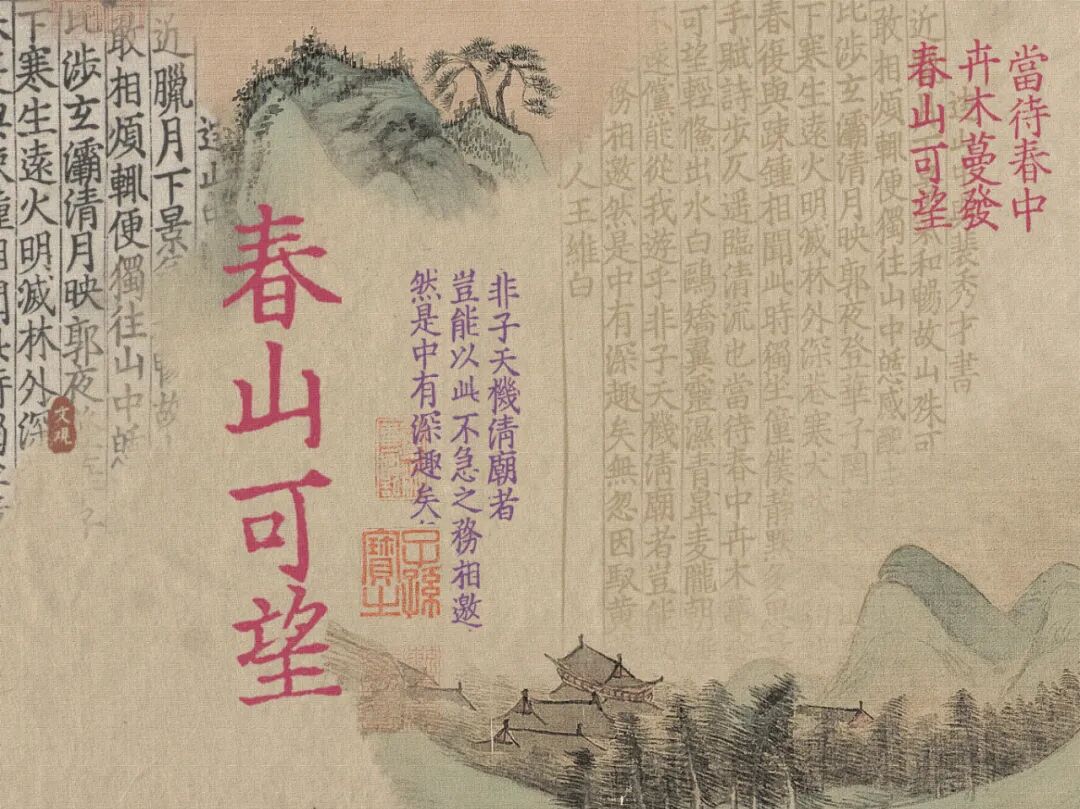 當待春中
卉木蔓發
春山可望
裴秀才書
和暢故山殊可
敢相煩輒便獨往山中憩感
比涉玄灞清月映郭夜
下寒生遠火明滅林外深巷寒犬
春復與疎鍾相聞此時獨坐僮僕靜默
手賦詩步仄逕臨清流也當待春中卉木
可望輕鯈出水白鷗矯翼露濕青皐麥隴朝
不遠僅能從我遊乎非子天機清廟者豈能
務相邀然是中有深趣矣無忽因馭黃
人王維白
非子天機清廟者
豈能以此不急之務相邀
然是中有深趣矣
春山可望
近臘月下景
敢相煩輒便獨往山中憩
比涉玄灞清月映郭夜
下寒生遠火明滅林外深
文觀